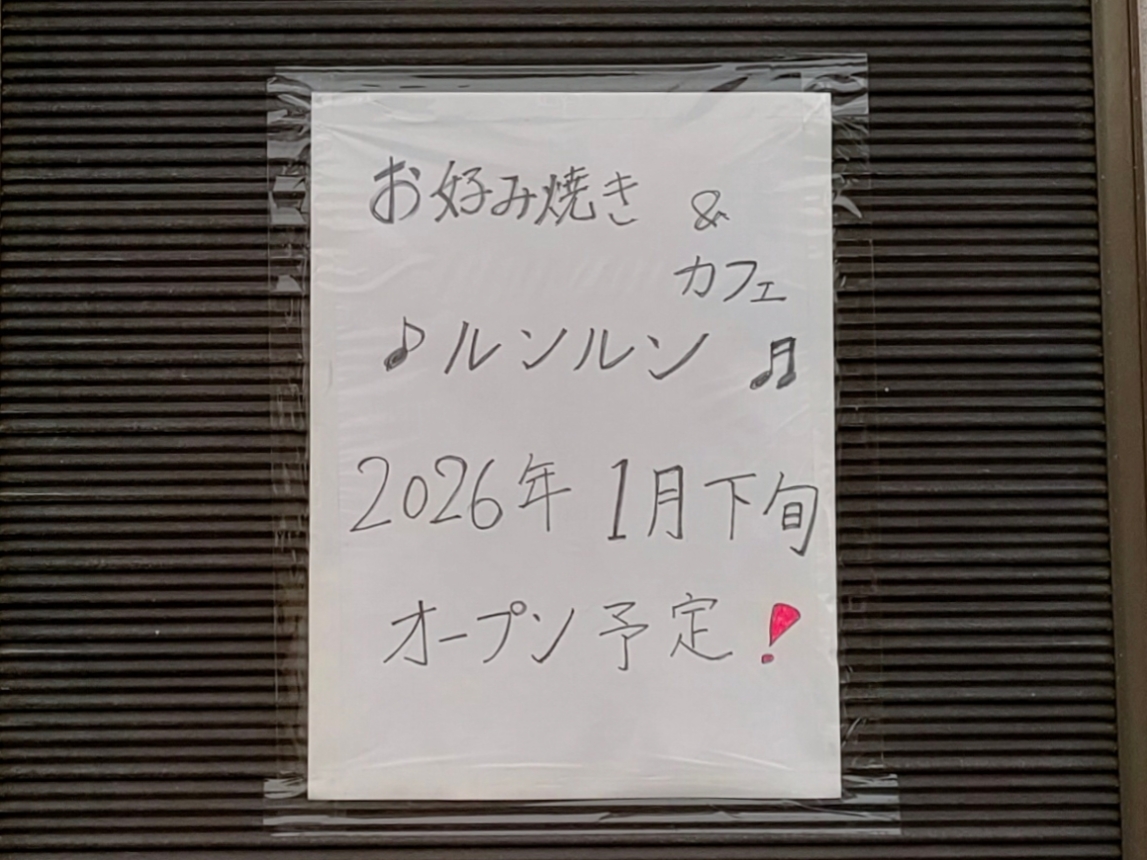 お好み焼き &
カフェ
♪ルンルン♬
2026年 1月下旬
オープン予定!